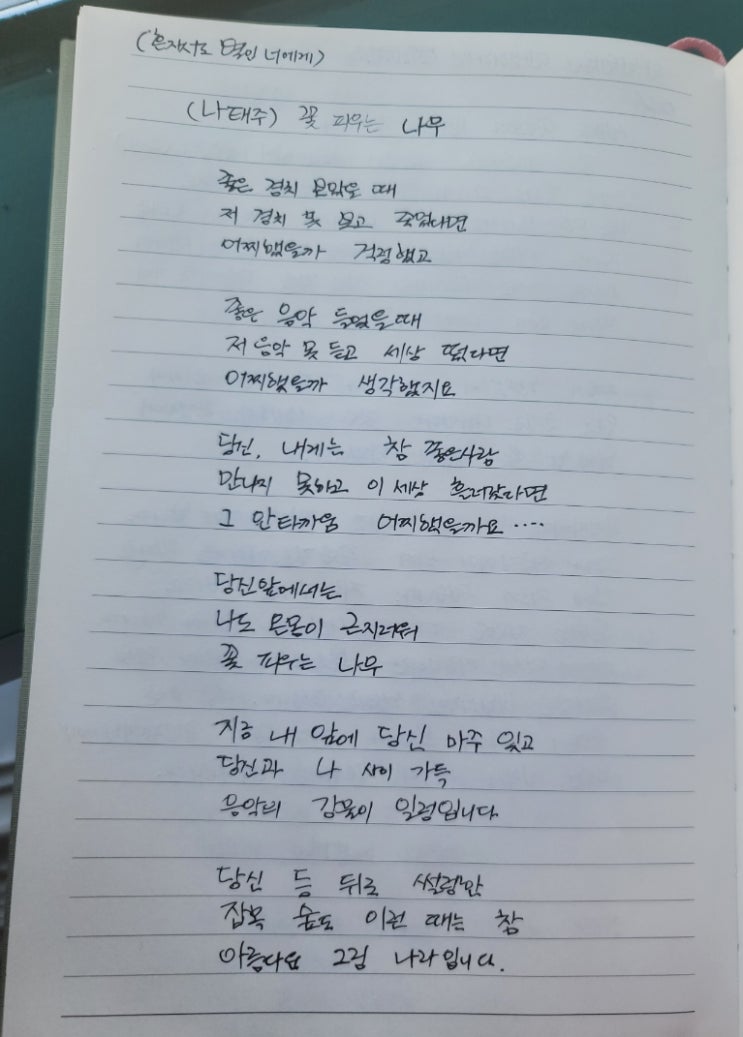 (혼자서도 별인 너에게)
(나태주) 꽃 피우는 나무
좋은 경치 보았을 때
저 경치 못 보고 죽었다면
어찌했을까 걱정했고
좋은 음악 들었을 때
저 음악 못 듣고 세상 떴다면
어찌했을까 생각했지요
당신, 내게는 참 좋은사람
만나지 못하고 이 세상 흘러갔다면
그 안타까움 어찌했을까요 ....
당신앞에서는
나도 온몸이 근지러워
꽃 피우는 나무
지금 내 앞에 당신 마주 있고
당신과 나 사이 가득
음악의 강물이 일렁입니다
당신 등 뒤로 썰렁한
잡목 숲도 이런 때는 참
아름다운 그림 나라입니다.